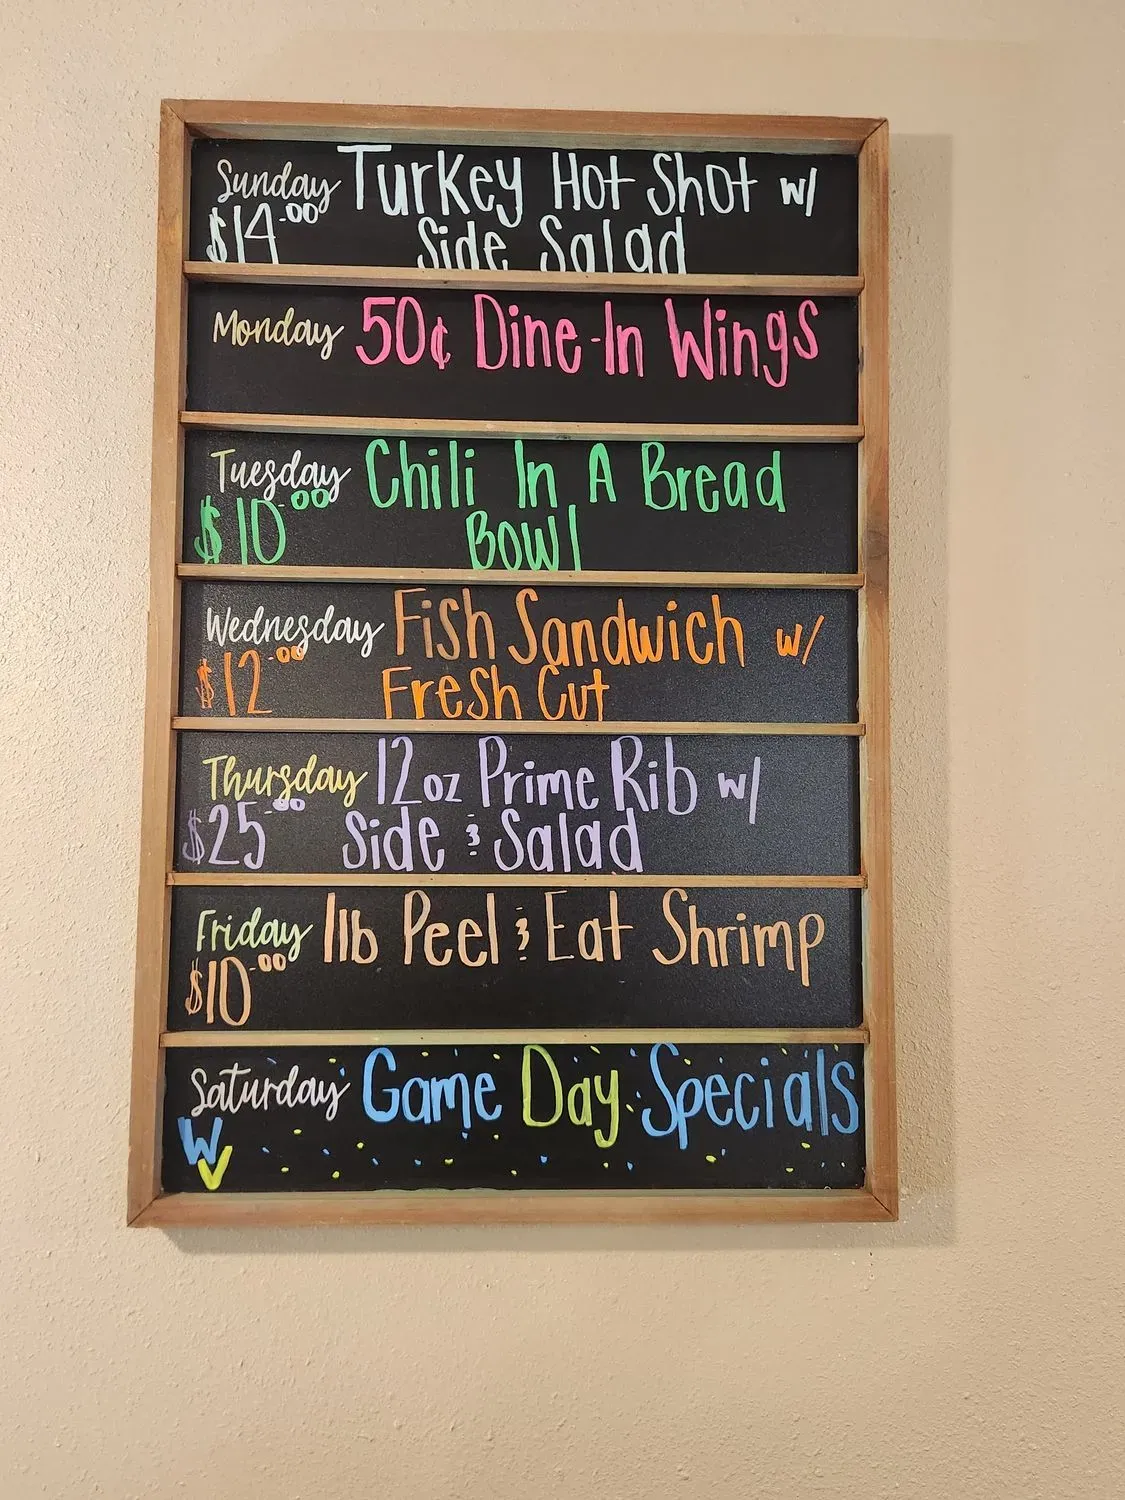 Sunday Turkey Hot Shot w/
$14.00 Side Salad
Monday 50¢ Dine-In Wings
Tuesday Chili In A Bread
$10.00 Bowl
Wednesday Fish Sandwich w/
$12.00 Fresh Cut
Thursday 12oz Prime Rib w/
$25.00 Side & Salad
Friday 1lb Peel & Eat Shrimp
$10.00
Saturday Game Day Specials
WV